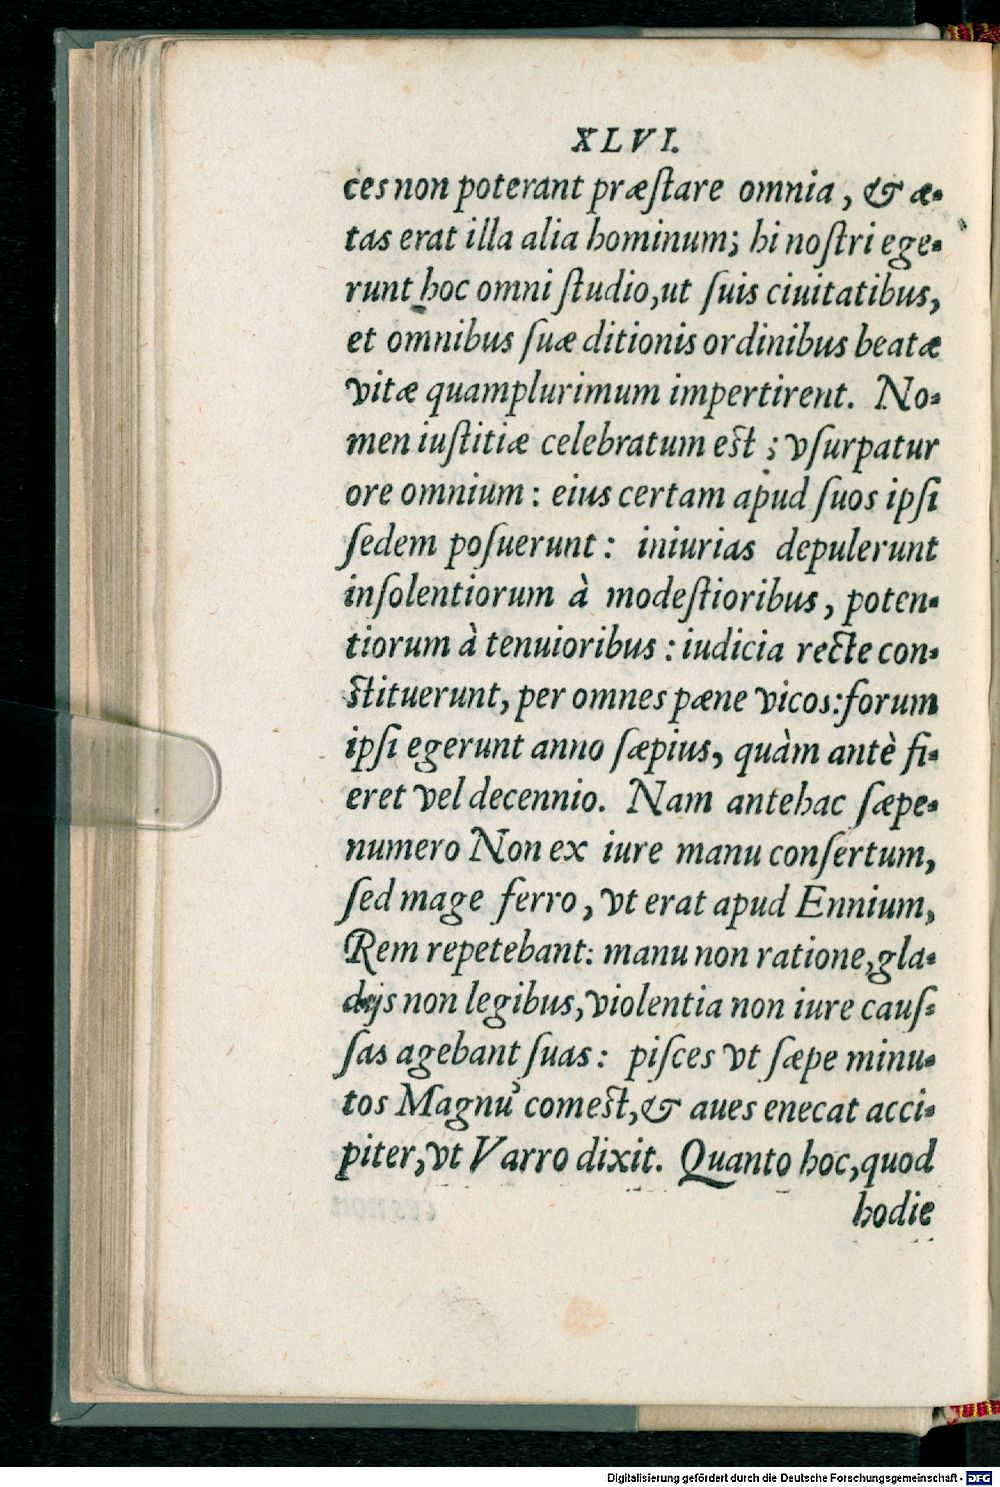 XLVI.
ces non poterant præſtare omnia, & æ-
tas erat illa alia hominum; hi noſtri ege-
runt hoc omni ſtudio, ut ſuis ciuitatibus,
et omnibus ſuæ ditionis ordinibus beatæ
vitæ quamplurimum impertirent. No-
men iuſtitiæ celebratum eſt; vſurpatur
ore omnium: eius certam apud ſuos ipſi
ſedem poſuerunt: iniurias depulerunt
inſolentiorum à modeſtioribus, poten-
tiorum à tenuioribus: iudicia recte con-
ſtituerunt, per omnes pæne vicos: forum
ipſi egerunt anno ſæpius, quàm antè fi-
eret vel decennio. Nam antehac ſæpe-
numero Non ex iure manu conſertum,
ſed mage ferro, vt erat apud Ennium,
Rem repetebant: manu non ratione, gla-
dijs non legibus, violentia non iure cauſ-
ſas agebant ſuas: piſces vt ſæpe minu-
tos Magnu᾿ comeſt, & aues enecat acci-
piter, vt Varro dixit. Quanto hoc, quod
hodie
Digitalisierung gefördert durch die Deutsche Forschungsgemeinschaft - DFG